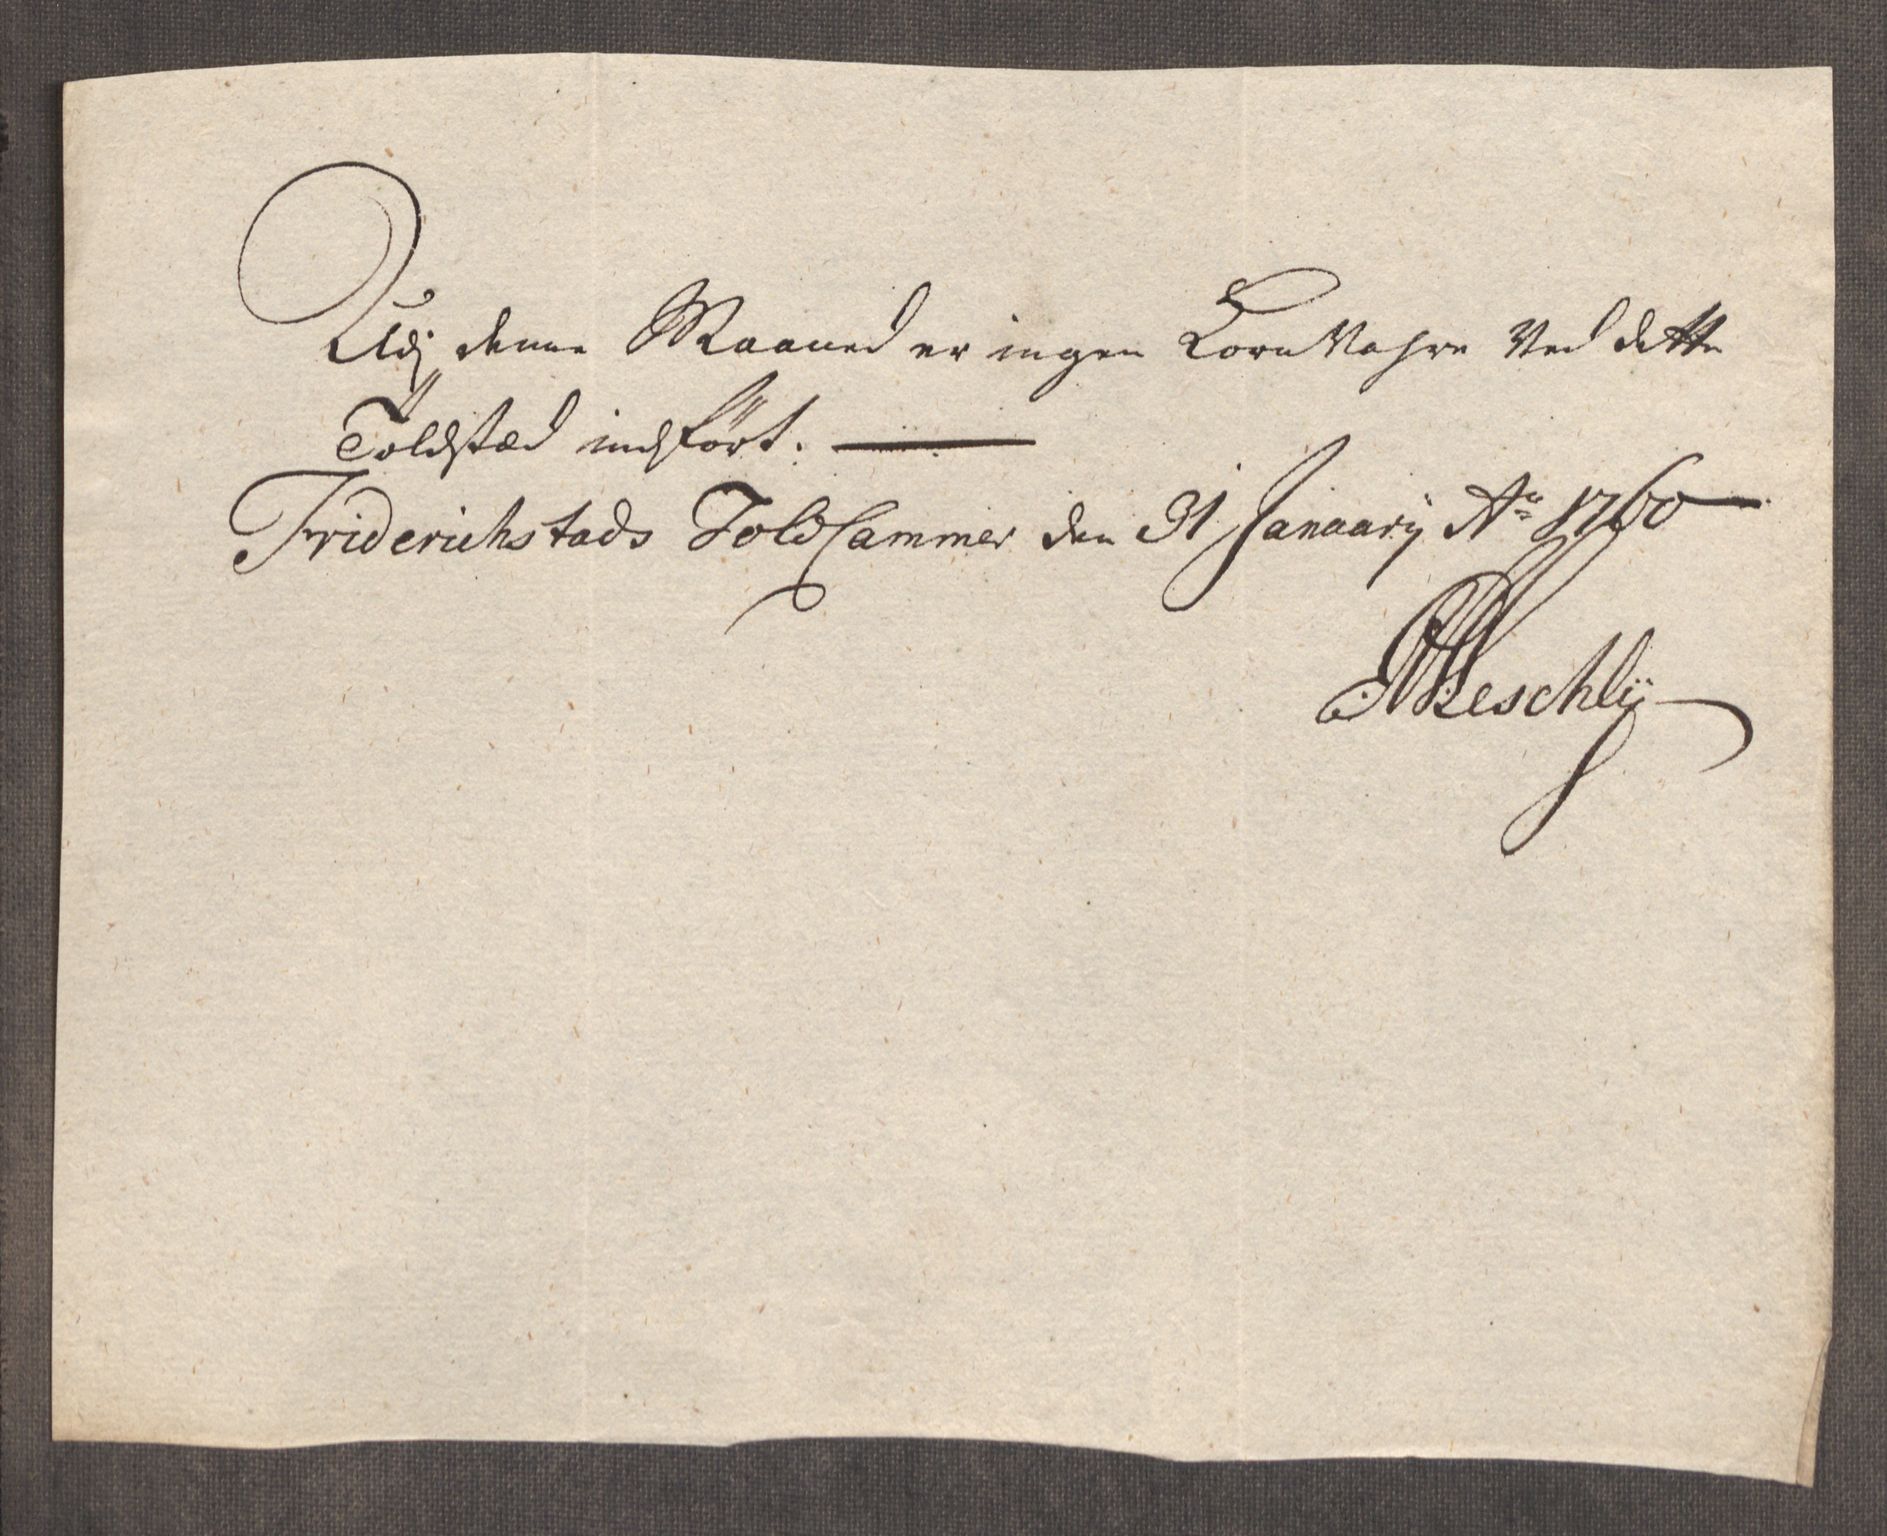 Udj denne Maaned er ingen Korn Vahre Ved dette
Toldsted indført.
Friderichstads Told Cammer den 31 Januarij Ao 1760